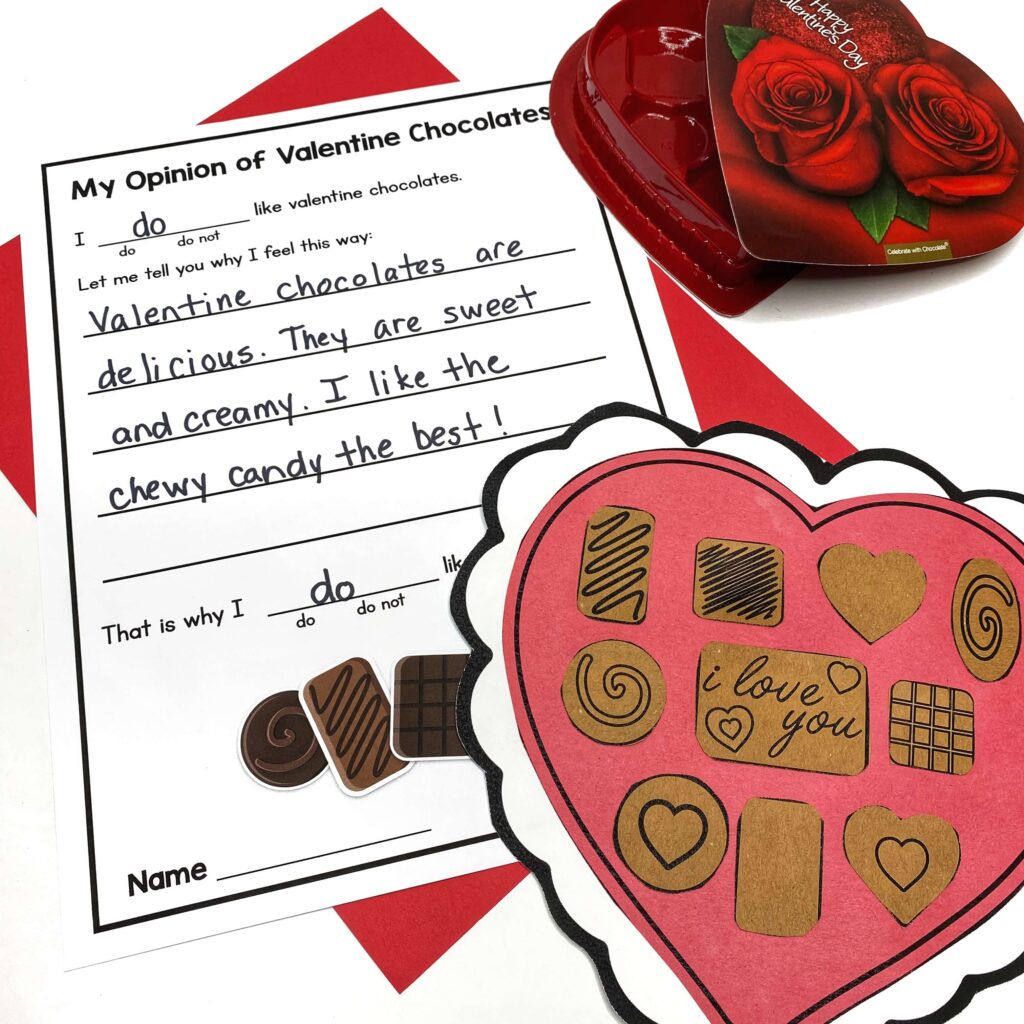 Happy
Valentine's Day
Celebrate with Chocolate®
My Opinion of Valentine Chocolates
I do like valentine chocolates.
do do not
Let me tell you why I feel this way:
Valentine chocolates are
delicious. They are sweet
and creamy. I like the
chewy candy the best!
That is why I do lik
do do not
Name
i love
you